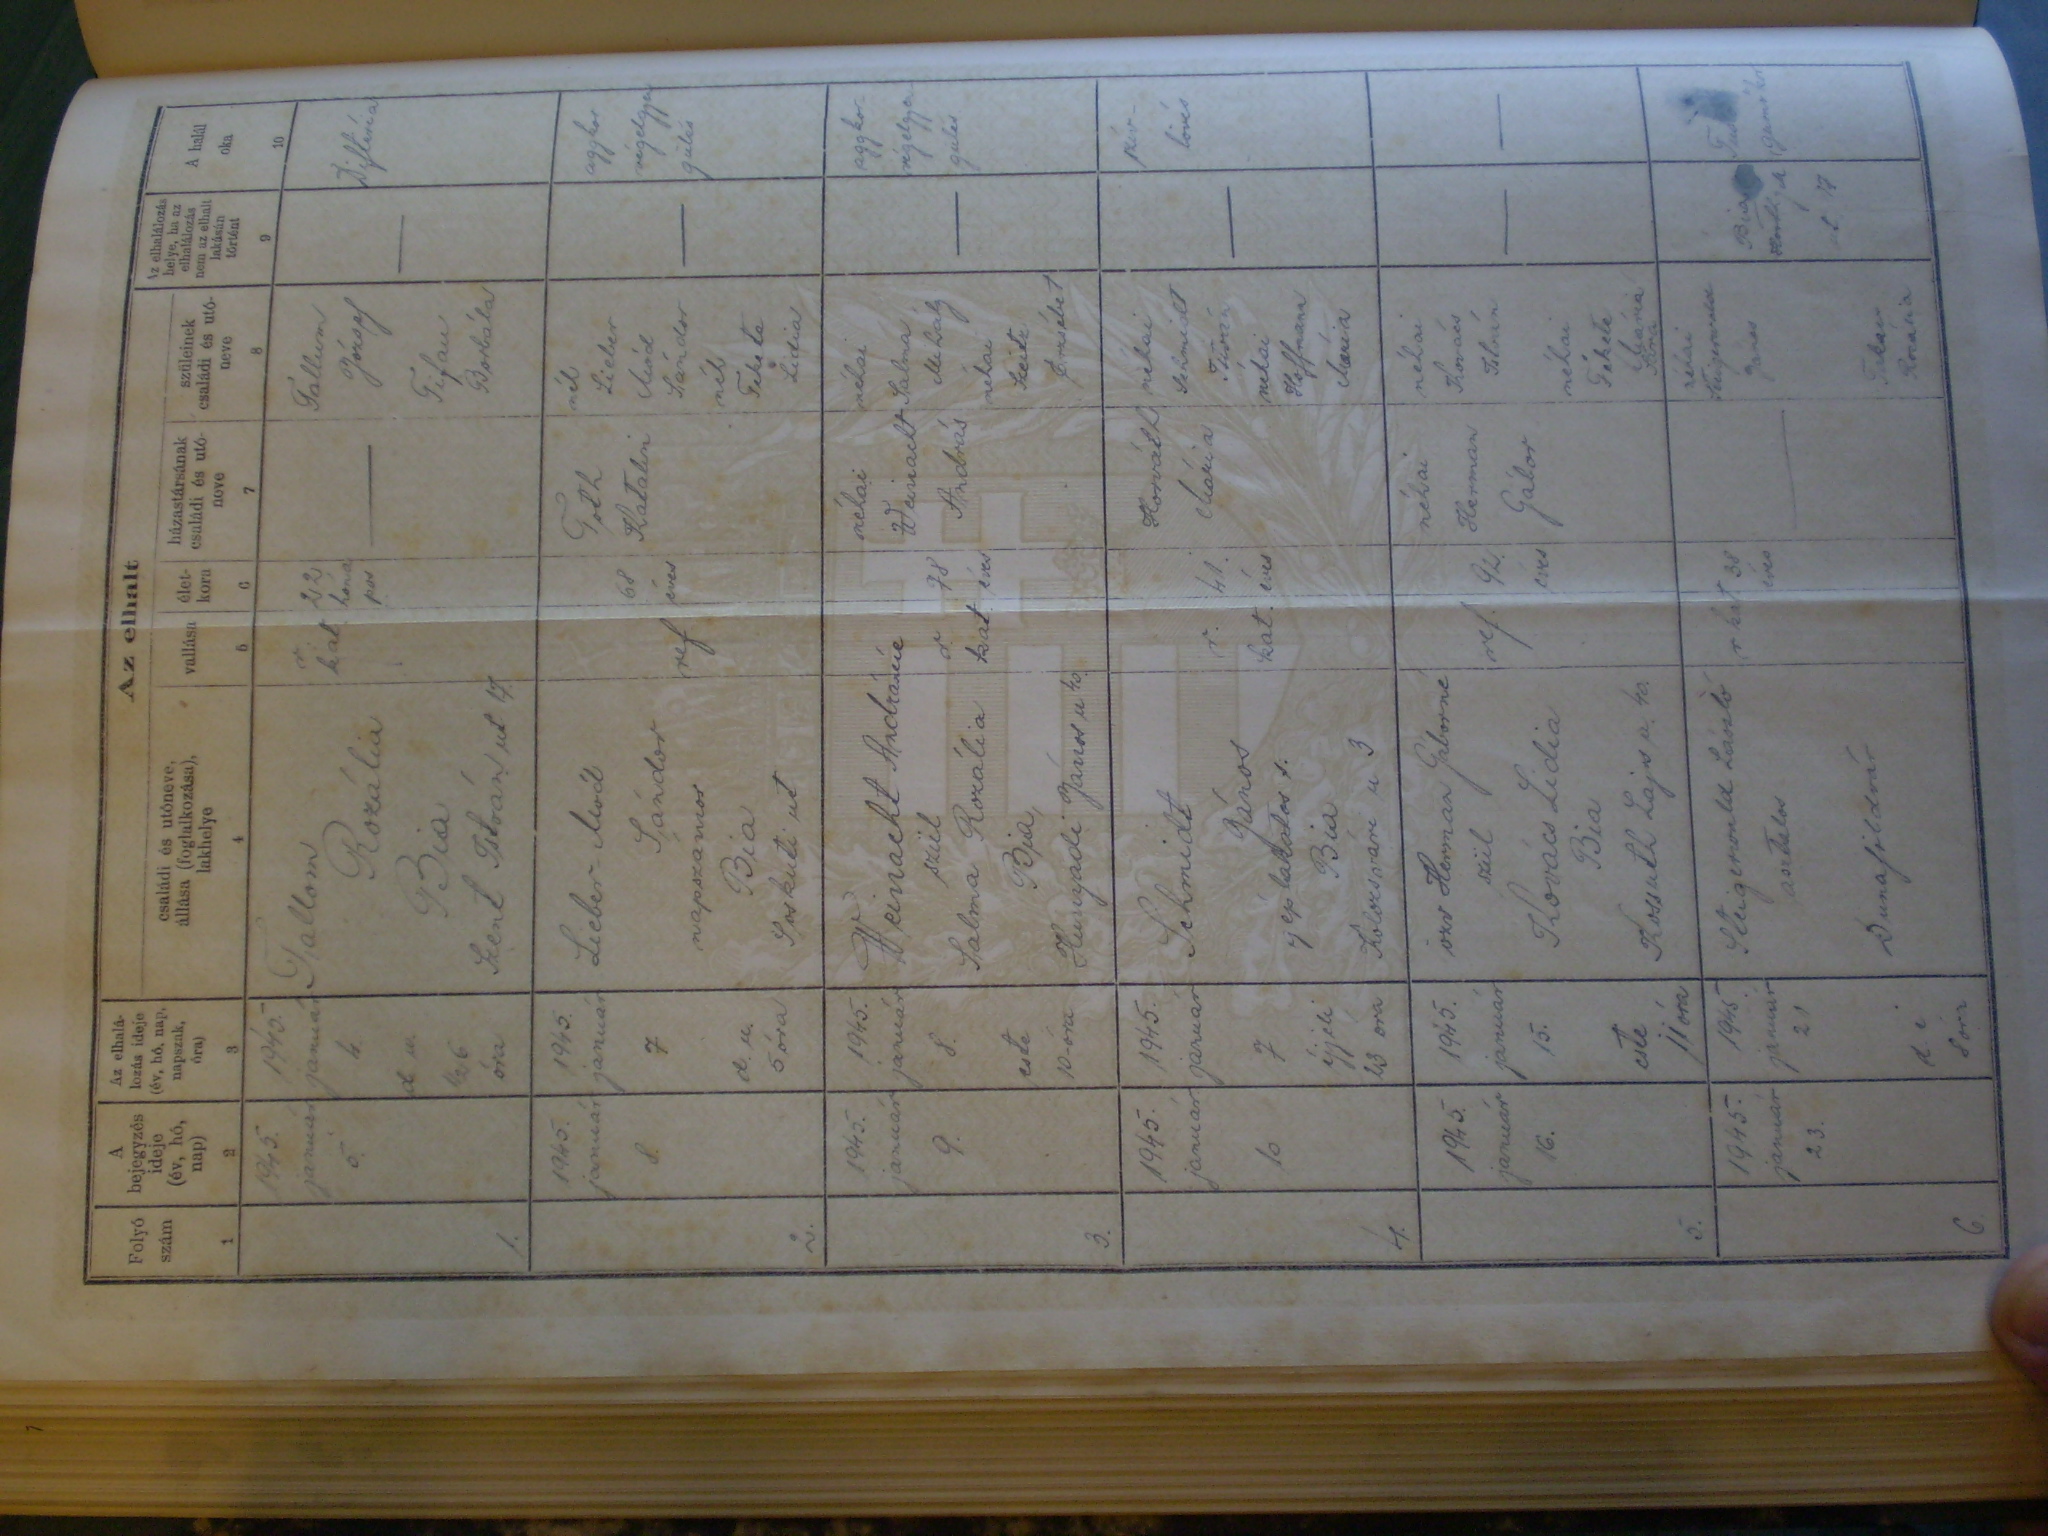 Az elhalt
Folyó
szám
A
bejegyzés
ideje
(év, hó,
nap)
Az elhalá-
lozás ideje
(év, hó, nap,
napszak,
óra)
családi és utóneve,
állása (foglalkozása),
lakhelye
vallása
élet-
kora
házastársának
családi és utó-
neve
szüleinek
családi és utó-
neve
Az elhalálozás
helye, ha az
elhalálozás
nem az elhalt
lakásán
történt
A halál
oka
1
2
3
4
5
6
7
8
9
10
1.
1945.
január
5.
1945.
január
4.
d. u.
óra
Tallom
Rozália
Bia
Szent István ut 17.
r.
kat.
22
hóna
pos
—
József
Borbála
—
Diftéria
2.
1945.
január
8.
1945.
január
7
d. u.
5 óra
Lieber-Moód
Sándor
napszámos
Bia
Soskuti ut
ref
68
éves
Tóth
Katalin
néh
Lieber
Moód
Sándor
néh
Fekete
Lidia
—
aggkor
végelgyen
gülés
3.
1945.
január
9.
1945.
január
8.
este
10-óra
Weinacht Andrásné
szül
Salma Rozália
Bia
Hunyadi János u 40.
r
kat.
78
éves
néhai
Weinacht
András
néhai
Salma
Mihály
néhai
Erzsébet
—
aggkor
végelgyen
gülés
4.
1945.
január
10
1945.
január
7
éjjeli
23 óra
Schmidt
János
géplakatos s.
Bia
Kolozsvári u 3
r.
kat.
41.
éves
Horváth
Mária
néhai
Schmidt
néhai
Hoffmann
Mária
—
szív-
lövés
5.
1945.
január
16.
1945.
január
15.
este
11 óra
özv Herman Gáborné
szül
Kovács Lidia
Bia
Kossuth Lajos u. 40.
ref.
92.
éves
néhai
Herman
Gábor
néhai
Kovács
István
néhai
Fekete
—
—
6.
1945.
január
23.
1945.
január
21
d. e
8 óra
László
asztalos
Dunaföldvár
r kat
38
éves
—
néhai
János
Rozália
Bia
ut 17